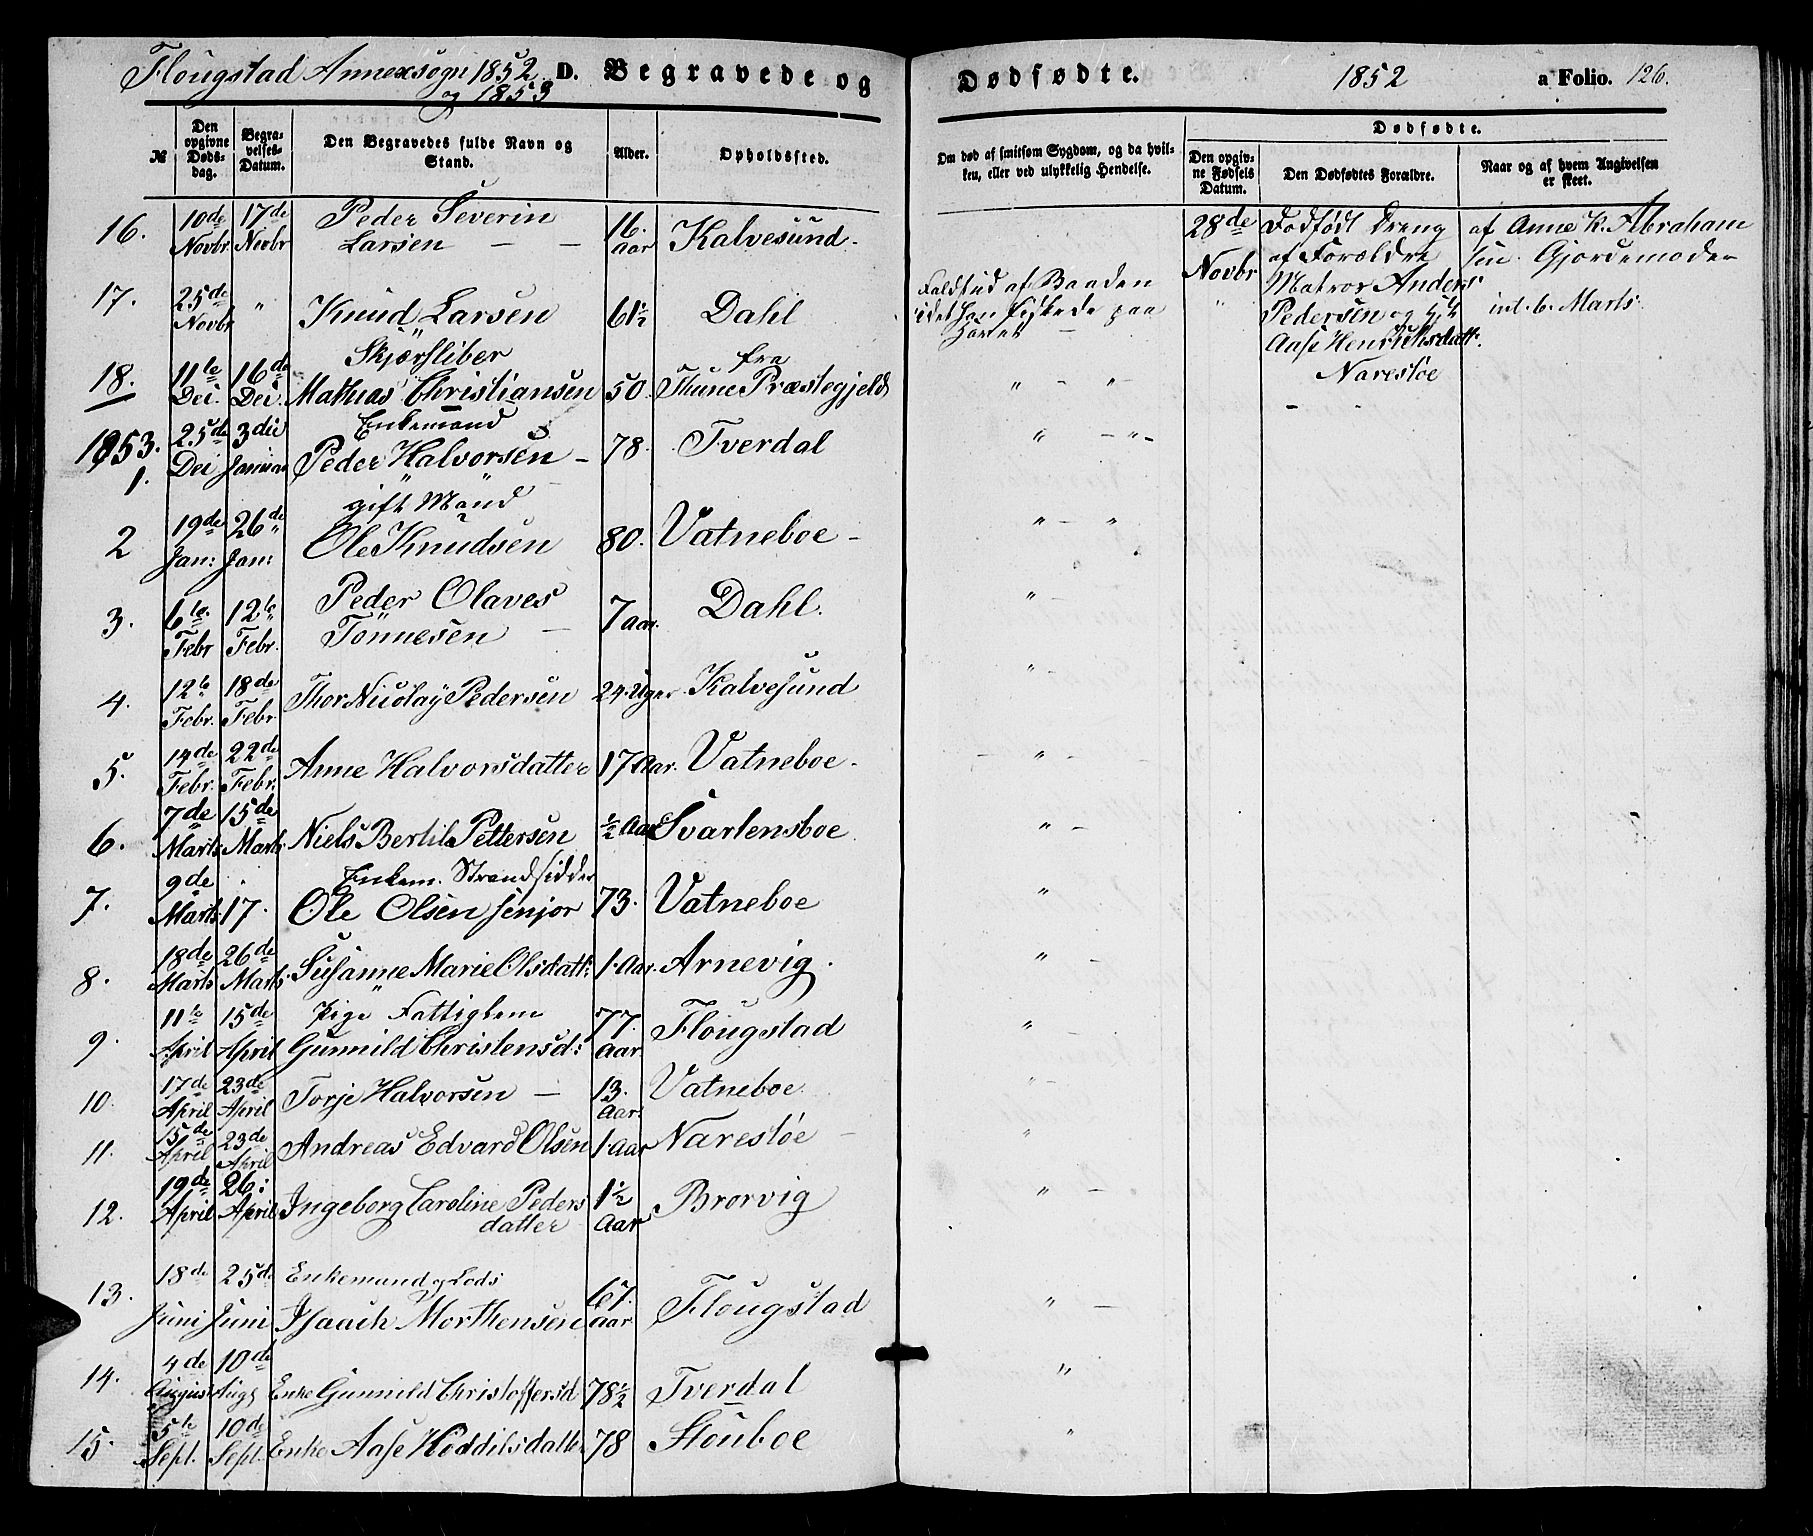 Flougstad Annexsogn 1852 D. Begravede og
og 1853
Dødfødte. 1852 a Folio. 126.
№
Den opgivne Døds-dag.
Begra-velses-Datum.
Den Begravedes fulde Navn og Stand.
Alder.
Opholdssted.
Om død af smitsom Sygdom, og da hvil-
ken, eller ved ulykkelig Hendelse.
Dødfødte.
Den opgiv-
ne Fødsels
Datum.
Den Dødfødtes Forældre.
Naar og af hvem Angivelsen
er skeet.
16. 10de Novbr 17de Novbr Peder Severin Larsen — — 16. aar Kalvesund.
17. 25de Novbr " Knud Larsen 61½ Dahl
Faldt ud af Baaden
idet han fiskede paa
Havet
18. 11te Dei. 16de Dei. Skjærsliber Mathias Christiansen 50. fra Thune Præstegjeld " — "
28de Novbr "
Dødfødt Dreng
af Forældre
Matros Anders
Pedersen og
Aase Henriksdatt.
Narestøe
af Anne K. Abraham
sen Gjordemoder
int. 6. Marts.
1853.
1. 25de Dei 3die Januar Enkemand Peder Halvorsen — 78. Tverdal " — " —
2 19de Jan: 26de Jan: gift Mand Ole Knudsen 80. Vatneboe — " — "
3. 6te Febr 12te Febr. Peder Olaves Tönnesen — 7 aar. Dahl. " —
4. 12te Febr. 18de Febr. Thor Nicolay Pedersen 24 Uger Kalvesund " —
5. 14de Febr. 22de Febr. Anne Halvorsdatter 17 Aar. Vatneboe. — " —
6. 7de Marts 15de Marts Niels Bertil Pettersen ½ Aar Svartensboe " —
7. 9de Marts 17. Enkem. Strandsidder Ole Olsen senjor 73. Vatneboe "
8. 18de Marts 26de Marts Susanne Marie Olsdatt: 1. Aar. Arnevig. " —
9. 11te April 15de April Pige Fattiglem Gunnild Christensd: 77. aar Flougstad " —
10. 17de April 23de April Torje Halvorsen — 13. Aar. Vatneboe. " —
11. 15de April 23de April Andreas Edvard Olsen 1. Aar Narestøe — "
12. 19de April 26: April Ingeborg Caroline Peders datter 1½ Aar Brorvig " —
13. 18de Juni 25de Juni Enkemand og Lods Isaach Morthensen 67. aar Flougstad " —
14. 4de August 10de Aug Enke Gunnild Christoffersd 78½ Tverdal "
15. 5te Sept. 10de Sept. Enke Aase Hoddilsdatter 78 Stouboe "